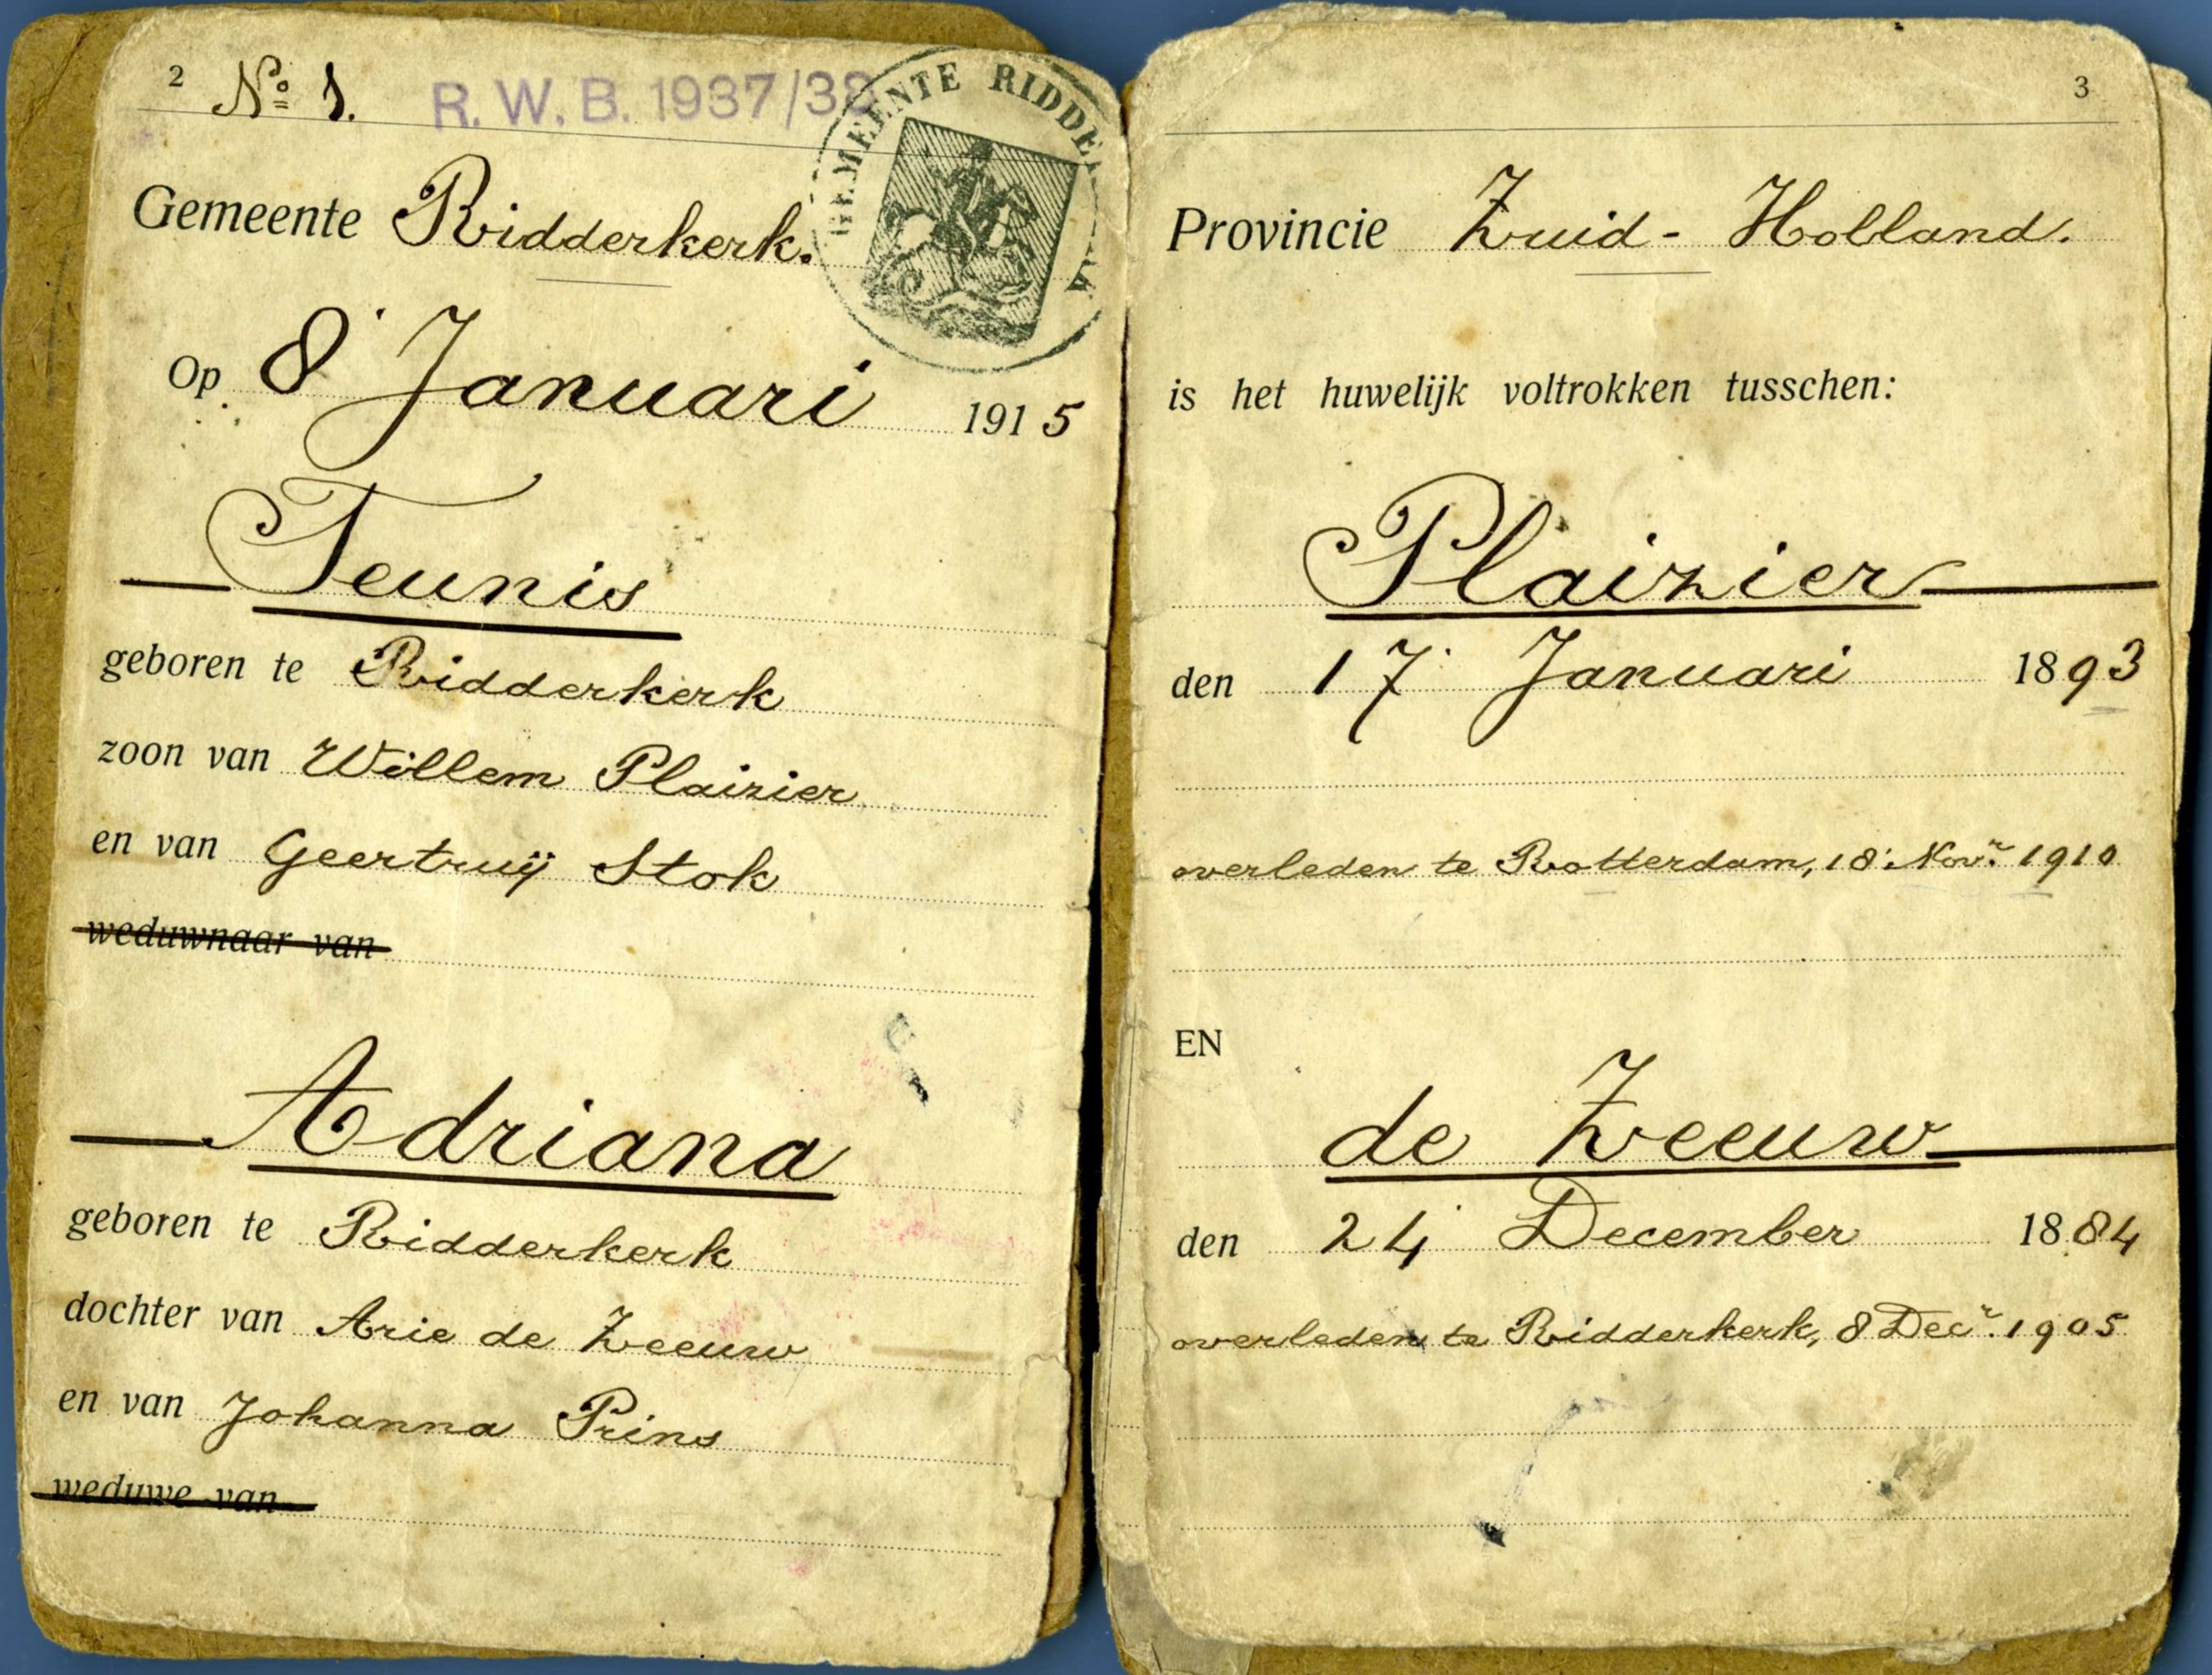 2 No 1. R. W. B. 1937/38
GEMEENTE RIDDE
Gemeente Ridderkerk.
Op 8 Januari 1915
Teunis
geboren te Ridderkerk
zoon van Willem Plaizier
en van Geertruij Stok
weduwnaar van
Adriana
geboren te Ridderkerk
dochter van Arie de Zeeuw
en van Johanna Prins
weduwe van
3
Provincie Zuid-Holland.
is het huwelijk voltrokken tusschen:
Plaizier
den 17 Januari 1893
overleden te Rotterdam, 18 Novr. 1910
EN
de Zeeuw
den 24 December 1884
overleden te Ridderkerk, 8 Decr. 1905